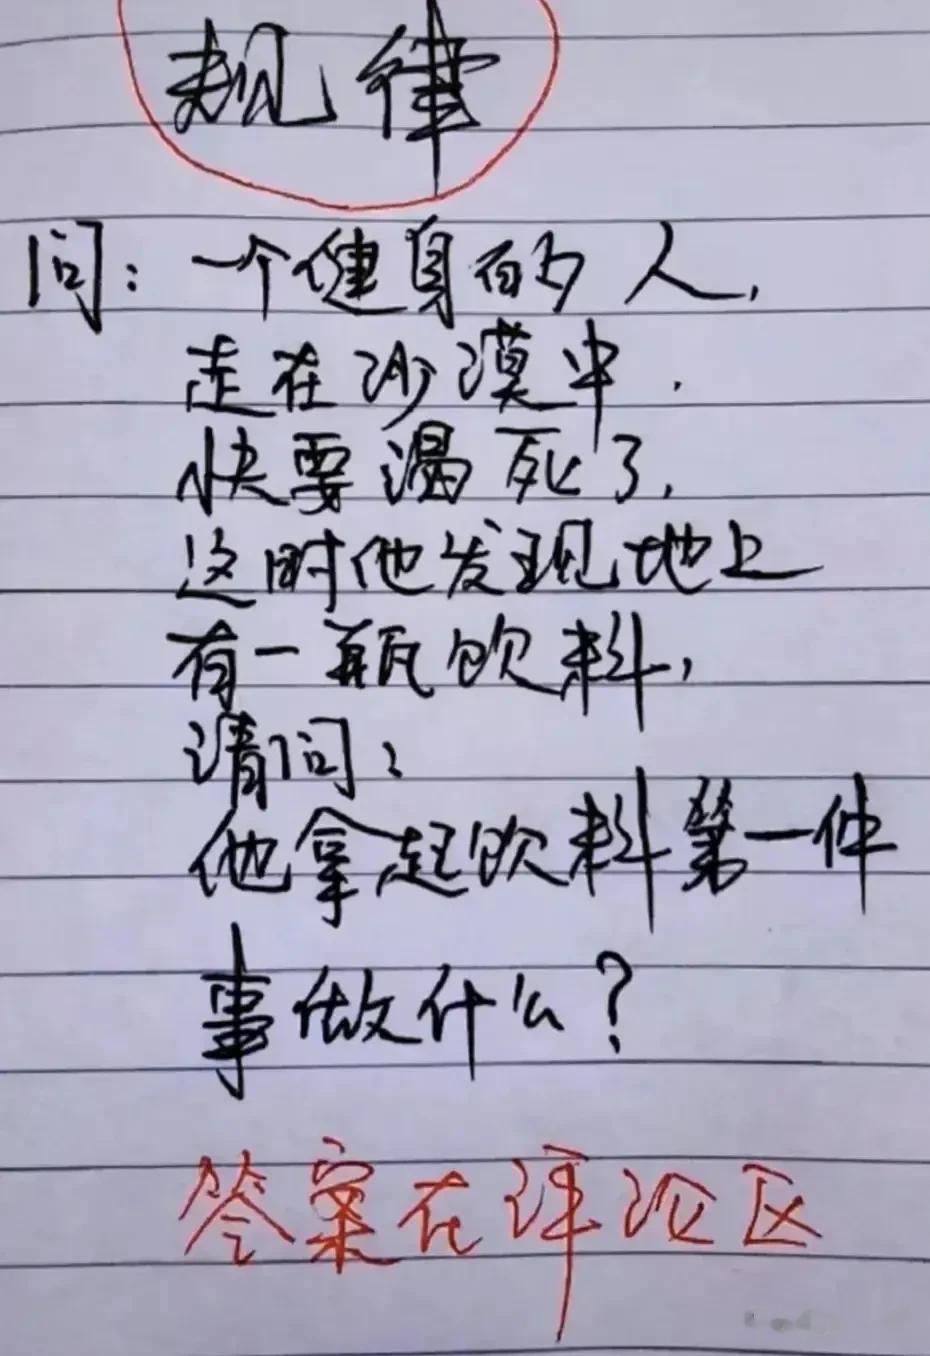 规律
问:一个健身的人,
走在沙漠中.
快要渴死了,
这时他发现地上
有一瓶饮料,
请问:
他拿起饮料第一件
事做什么?
答案在评论区